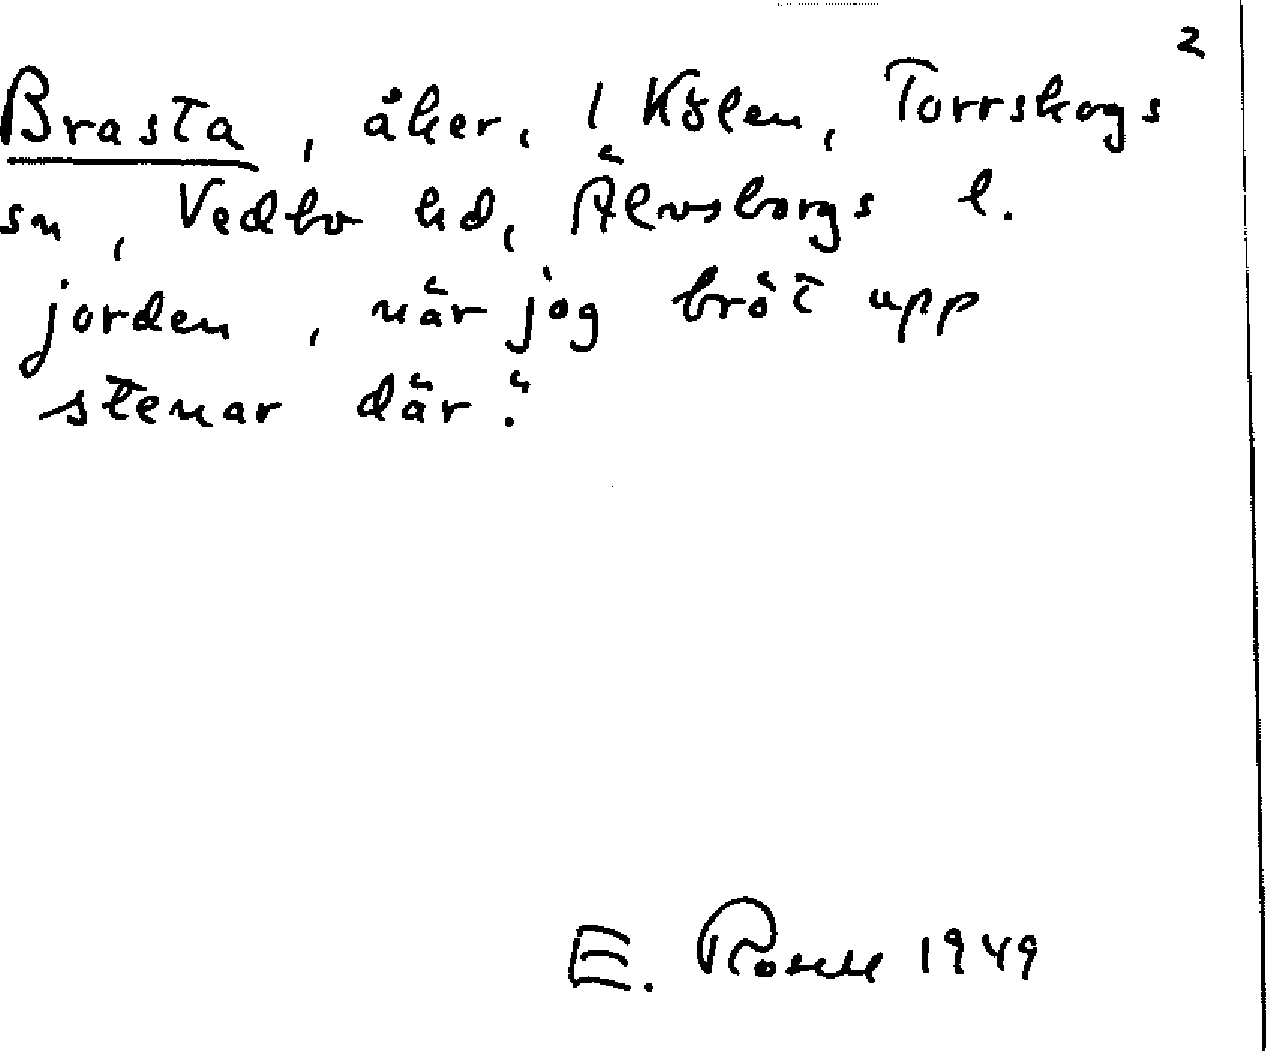 2
Brasta, åker, 1 Kölen, Torrskogs
sn, Vedbo hd, Älvsborgs l.
jorden, när jog bröt upp
stenar där."
E. 1949